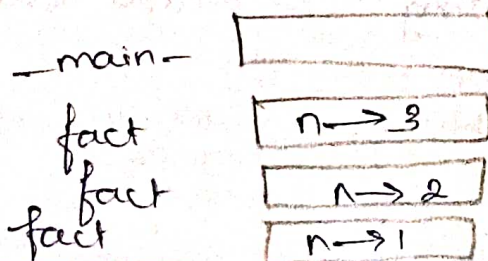 _main_
fact n→3
fact n→2
fact n→1